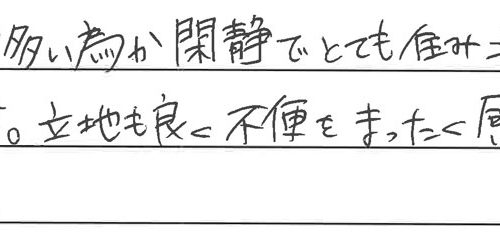 多い為か閑静でとても住み
。立地も良く不便をまったく